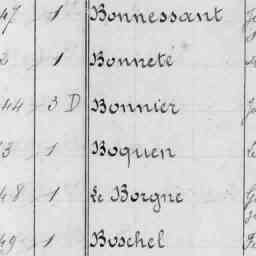 47 1 Bonnessant
2 1 Bonneté
44 3 D Bonnier
3 1 Boquen
48 1 Le Borgne
49 1 Boschel